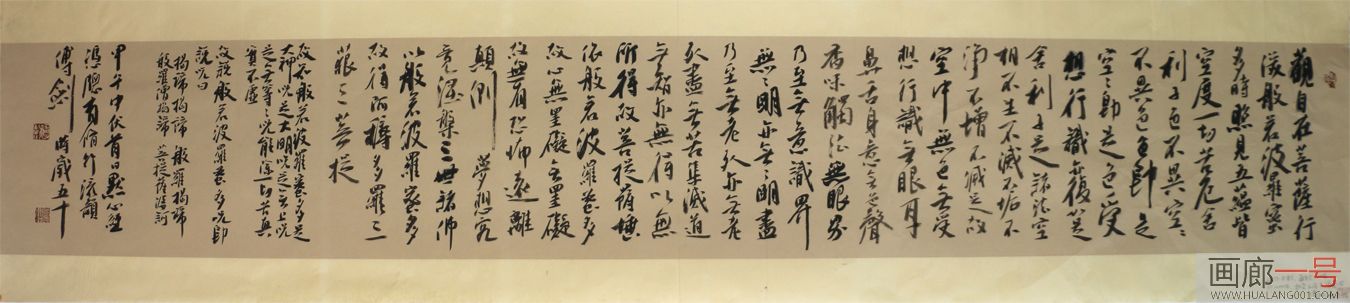 觀自在菩薩行
深般若波羅蜜
多時照見五蘊皆
空度一切苦厄舍
利子色不異空空
不異色色即是
空空即是色受
想行識亦復如是
舍利子是諸法空
相不生不滅不垢不
淨不增不減是故
空中無色無受
想行識無眼耳
鼻舌身意無色聲
香味觸法無眼界
乃至無意識界
無無明亦無無明盡
乃至無老死亦無老
死盡無苦集滅道
無智亦無得以無
所得故菩提薩埵
依般若波羅蜜多
故心無罣礙無罣礙
故無有恐怖遠離
顛倒夢想究
竟涅槃三世諸佛
以般若波羅蜜多
故得阿耨多羅三
藐三菩提
故知般若波羅蜜多是
大神咒是大明咒是無上咒
是無等等咒能除一切苦真
實不虛
故說般若波羅蜜多咒即
說咒曰
揭諦揭諦 般羅揭諦
般羅僧揭諦 菩提薩婆訶
甲午中伏首日默心經
馮聰有脩竹流韻
傅劍 時歲五十
画廊一号
WWW.HUALANG001.COM